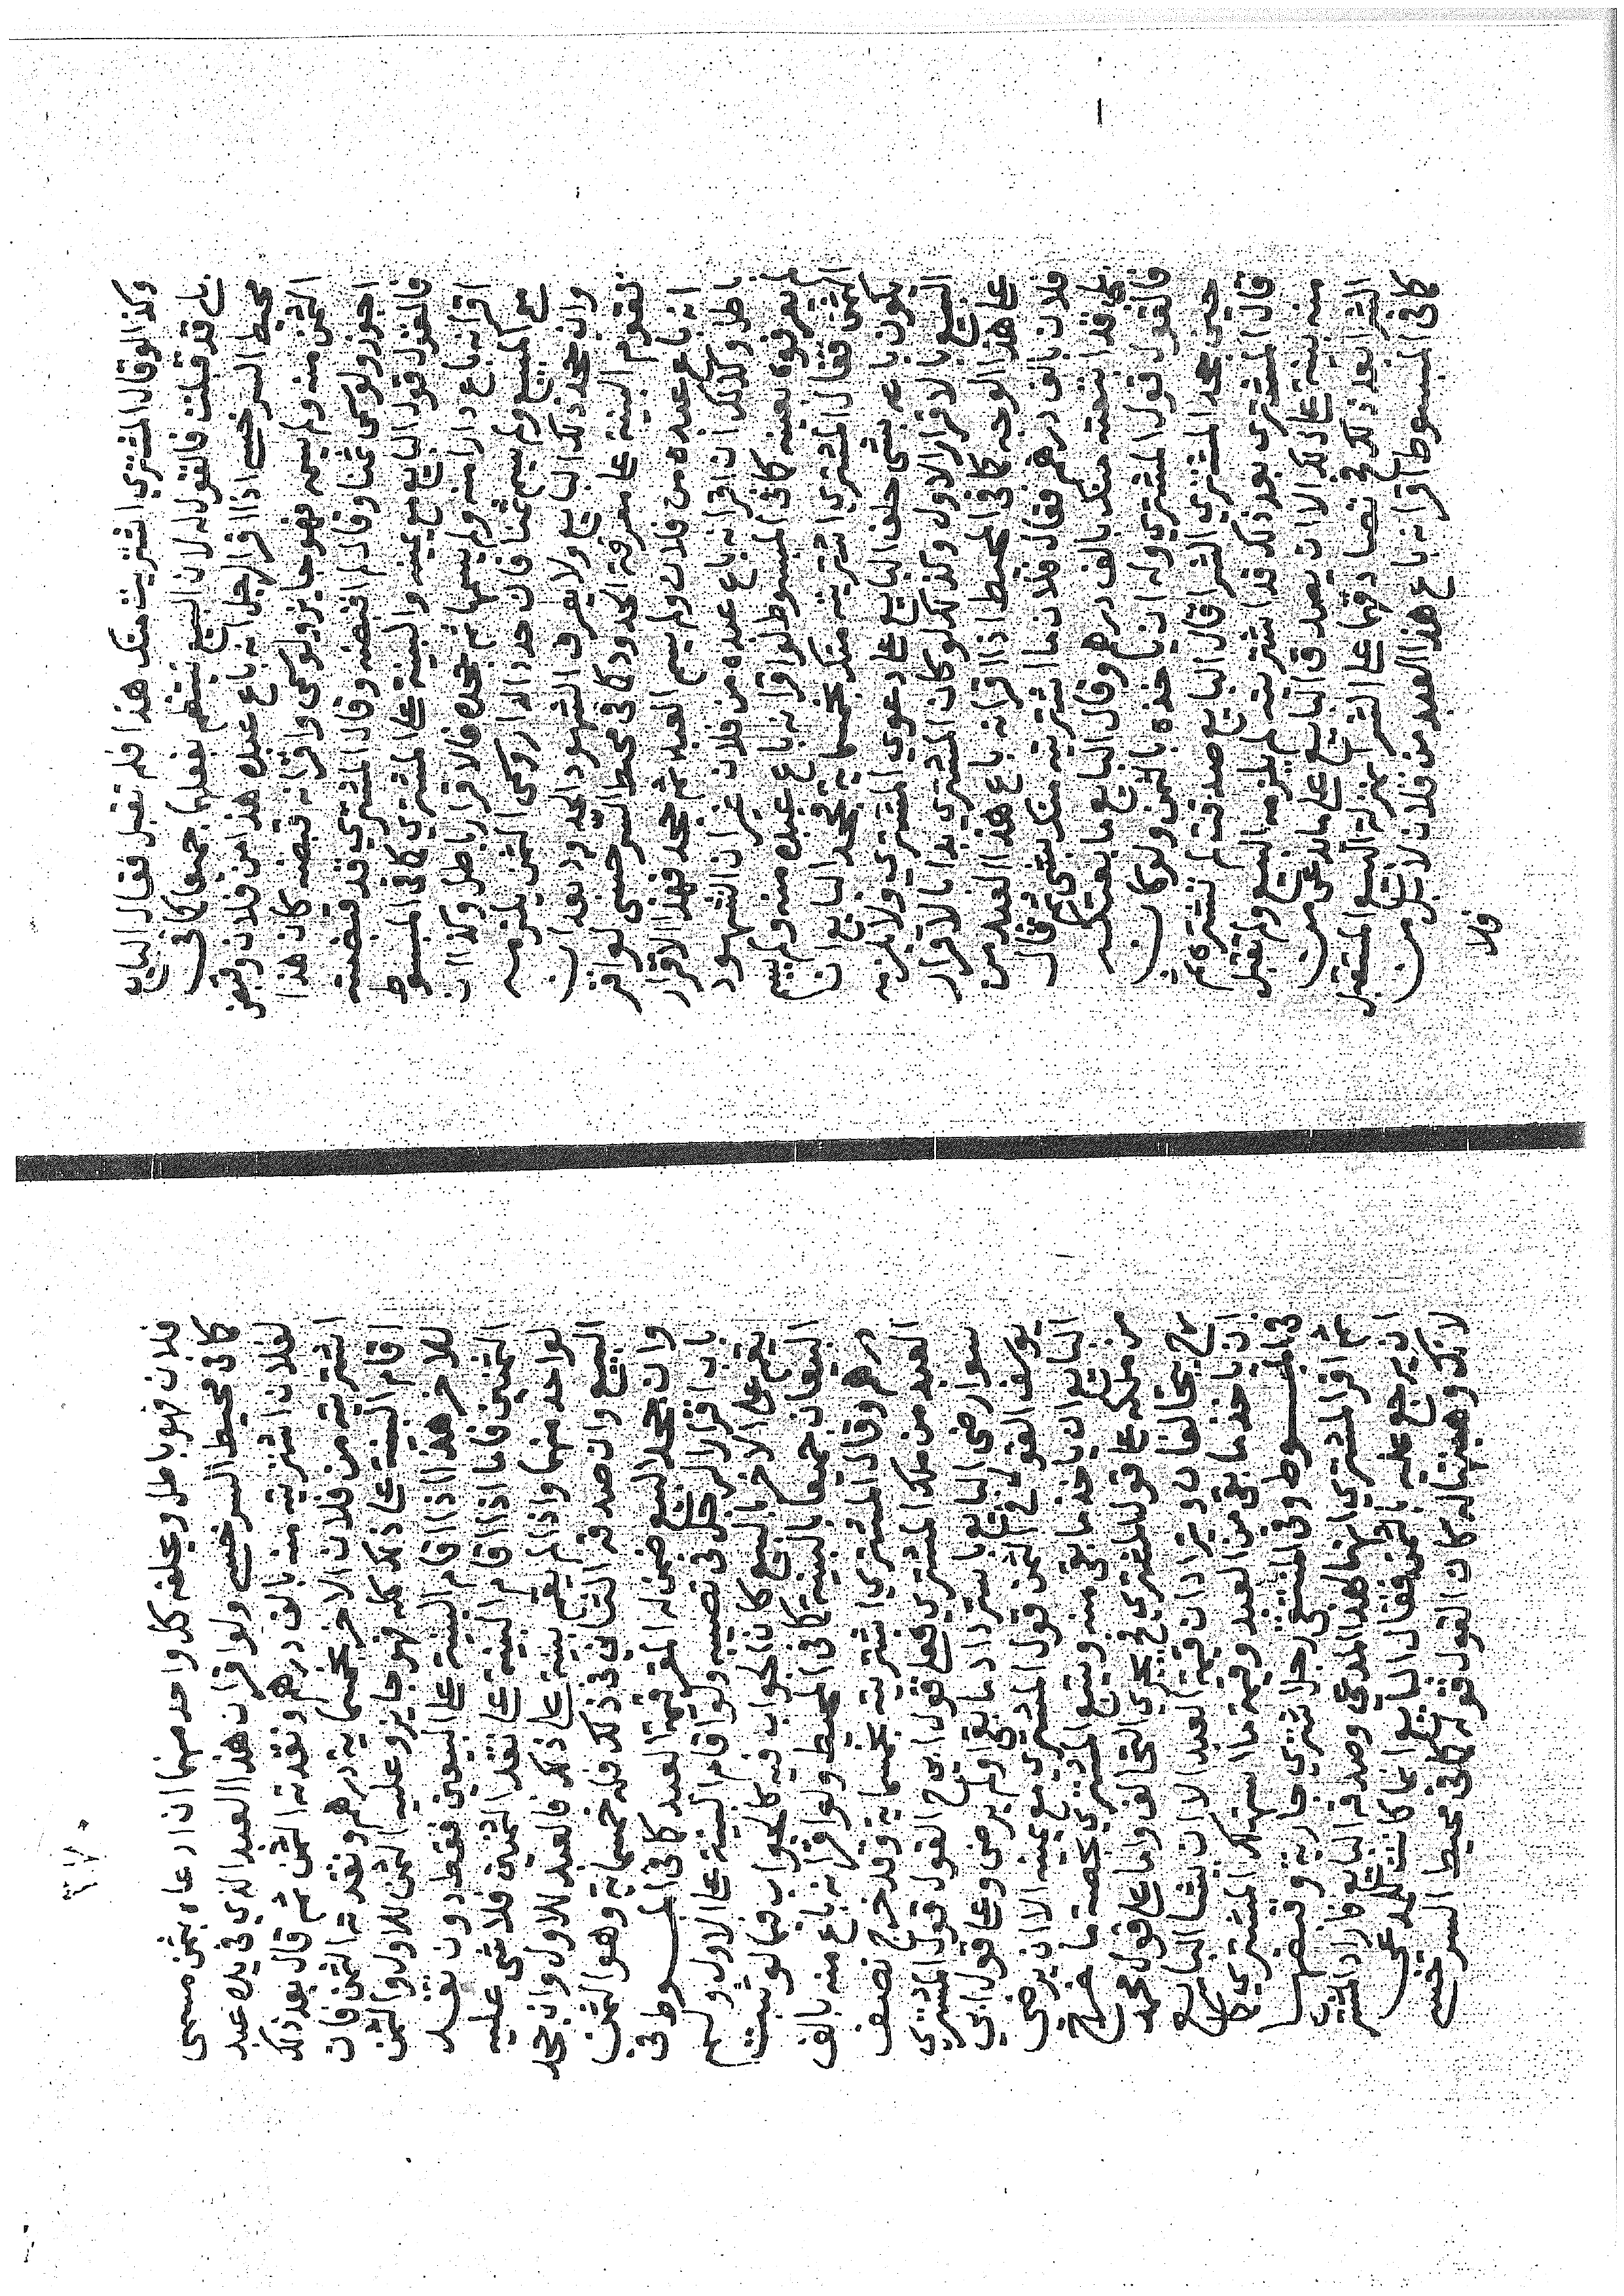 وكذا لو قال المشتري اشتريت منك هذا فلم تقبل فقال البايع
بلي قد قبلت فالقول له لان البيع ينتظم بفعلهما جميعا كذا في
محيط السرخسي اذا اقر الرجل انه باع عبده هذا من فلان وقبض
الثمن منه ولم يسمه فهو جايز ولو سمى واقر انه قبضه كان هذا
اجوز ولو سمى ثمنا وقال لم اقبضه وقال المشتري قد قبضته
فالقول قول البايع مع يمينه والبينة على المشتري كذا في المبسوط
اقر انه باع دارا منه ولم يسمها ثم جحده فالاقرار باطل وكذا ان
سمى المبيع ولم يسم ثمنا فان حدد الدار وسمى الثمن يلزمه
وان جحد ذلك البايع ولا يعرف الشهود الحدود بعد ان
تقوم البينة على معرفة الحدود كذا في محيط السرخسي لو اقر
انه باع عبده من فلان ولم يسم العبد ثم جحد فهذا الاقرار
باطل وكذلك ان اقر انه باع عبده من فلان غير ان الشهود
لم يعرفوه بعينه كذا في المبسوط لو اقر انه باع عبده منه ولم يسم
الثمن فقال المشتري اشتريته منك بخمسماية فجحد البايع ان
يكون باعه بشي حلف البايع على دعوى المشتري ولا يلزمه
البيع بالاقرار الاول وكذلك لو كان المشتري بدا بالاقرار
على هذا الوجه كذا في المحيط اذا اقر انه باع هذا العبد من
فلان بالف درهم فقال فلان ما اشتريته منك بشي ثم قال
بلى قد ابتعته منك بالف درهم وقال البايع ما بعتكه
فالقول قول المشتري وله ان ياخذه بالثمن ولو كان
حين جحد المشتري الشرا قال البايع صدقت لم تشتره ثم
قال المشتري بعد ذلك قد اشتريته لم يلزمه البيع ولم تقبل
منه بينة على ذلك الا ان يصدق البايع على ما يدعي من
الشرا بعد ذلك فح تصادقهما على الشرا بمنزلة البيع المستقبل
كذا في المبسوط اقر انه باع هذا العبد من فلان لا بل من
فلان
٣١٧
فلان فهو باطل ويحلفه كل واحد منهما ان ادعاه بثمن مسمى
كذا في محيط السرخسي ولو اقر ان هذا العبد الذي في يده عبد
لفلان اشتريته منه بالف درهم ونقدته الثمن ثم قال بعد ذلك
اشتريته من فلان الاخر بخمسماية درهم ونقدته الثمن فان
اقام البينة على ذلك كله فهو جايز وعليه الثمن للاول والثمن
للاخر هذا اذا اقام البينة على البيعين فقط دون نقد
الثمنين فاما اذا اقام البينة على نقد الثمنين فلا شى عليه
لواحد منهما واذا لم يقم بينة على ذلك فالعبد للاول وان جحد
البيع وان صدقه الثاني في ذلك فله خمسماية وهو الثمن
وان جحد البيع ضمن له المقر قيمة العبد كذا في المبسوط في
باب اقرار الرجل في نصيبه ولو اقام البينة على الاول ولم
يقم على الاخر بالبيع كان الجواب فيه كالجواب فيما لو ثبت
البيعان جميعا بالبينة كذا في المحيط ولو اقر انه باع منه بالف
درهم وقال المشتري اشتريته بخمسماية وقد خرج نصف
العبد من ملك المشتري فعلى قول ابي ح القول قول المشتري
سوا رضى البايع باسترداد ما بقى او لم يرض وعلى قول ابي
يوسف القول في الثمن قول المشتري مع يمينه الا ان يرضى
البايع ان ياخذ ما بقى منه ويتبع المشتري بحصة ما خرج
من ملكه على قول المشتري فح يجري التحالف واما على قول محمد
رح يتحالفان ويترادان قيمة العبد الا ان يشا البايع
ان ياخذ ما بقى من العبد وقيمة ما استهلك المشتري كذا
في المبسوط وفي المنتقى رجل اشترى جارية وقبضها
ثم اقر المشتري انها لهذا المدعي وصدقه البايع فاراد المشتري
ان يرجع عليه بالثمن فقال البايع انما كانت للمدعي
لانك وهبتها له كان القول قوله كذا في محيط السرخسي